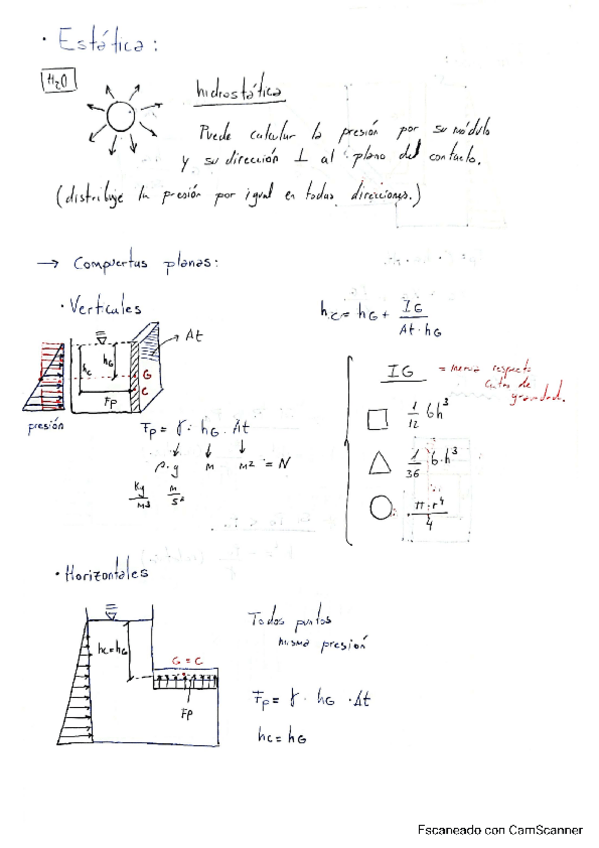 · Estática:
H₂O
hidrostática
Puede calcular la presión por su módulo
y su dirección ⊥ al plano del contacto.
(distribuye la presión por igual en todas direcciones.)
→ Compuertas planas:
· Verticales
hc = hG + IG / At·hG
At
hc
hG
G
C
Fp
presión
Fp = γ · hG · At
ρ·g m m² = N
Kg/m³ m/s²
IG = inercia respecto
centro de
gravedad.
1/12 b h³
1/36 b·h³
π·r⁴/4
· Horizontales
hc=hG
G = C
Fp
Todos puntos
misma presión
Fp = γ · hG · At
hc = hG
Escaneado con CamScanner